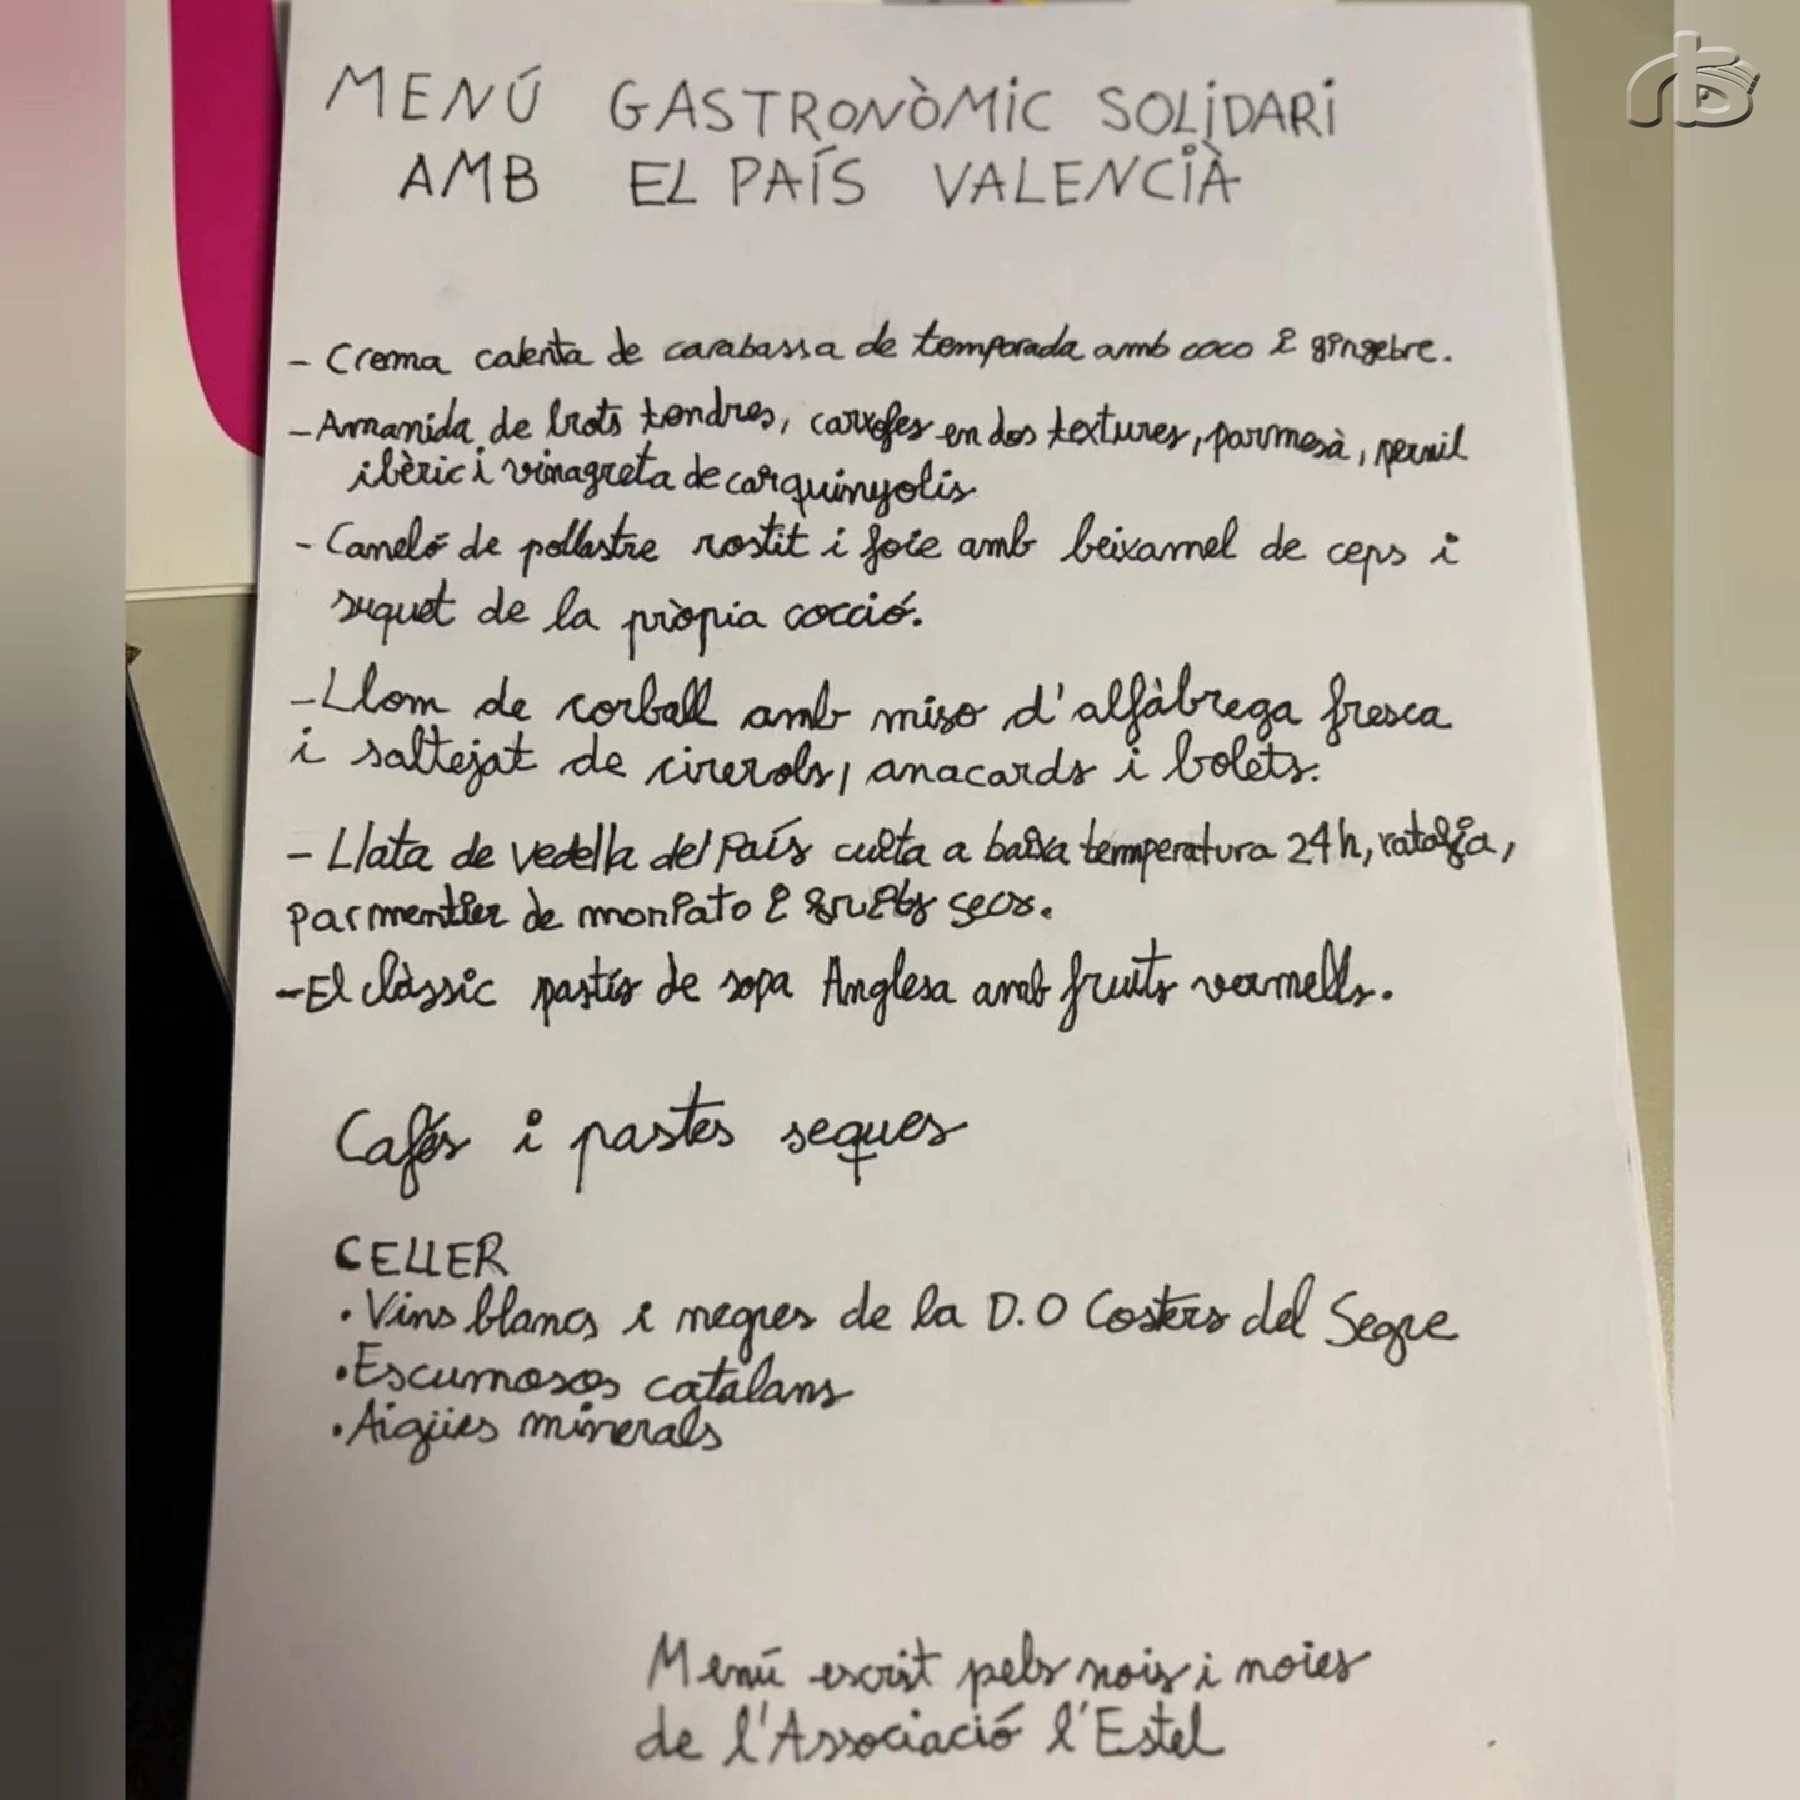 MENÚ GASTRONÒMIC SOLIDARI
AMB EL PAÍS VALENCIÀ
- Crema calenta de carabassa de temporada amb coco i gingebre.
- Amanida de brots tendres, carxofes en dos textures, parmesà, pernil
ibèric i vinagreta de carquinyolis
- Caneló de pollastre rostit i foie amb beixamel de ceps i
suquet de la pròpia cocció.
- Llom de corball amb miso d'alfàbrega fresca
i saltejat de cirerols, anacards i bolets.
- Llata de vedella del País cuita a baixa temperatura 24h, ratafia,
parmentier de moniato i fruits secs.
- El clàssic pastís de sopa Anglesa amb fruits vermells.
Cafés i pastes seques
CELLER
• Vins blancs i negres de la D.O Costers del Segre
• Escumosos catalans
• Aigües minerals
Menú escrit pels nois i noies
de l'Associació l'Estel